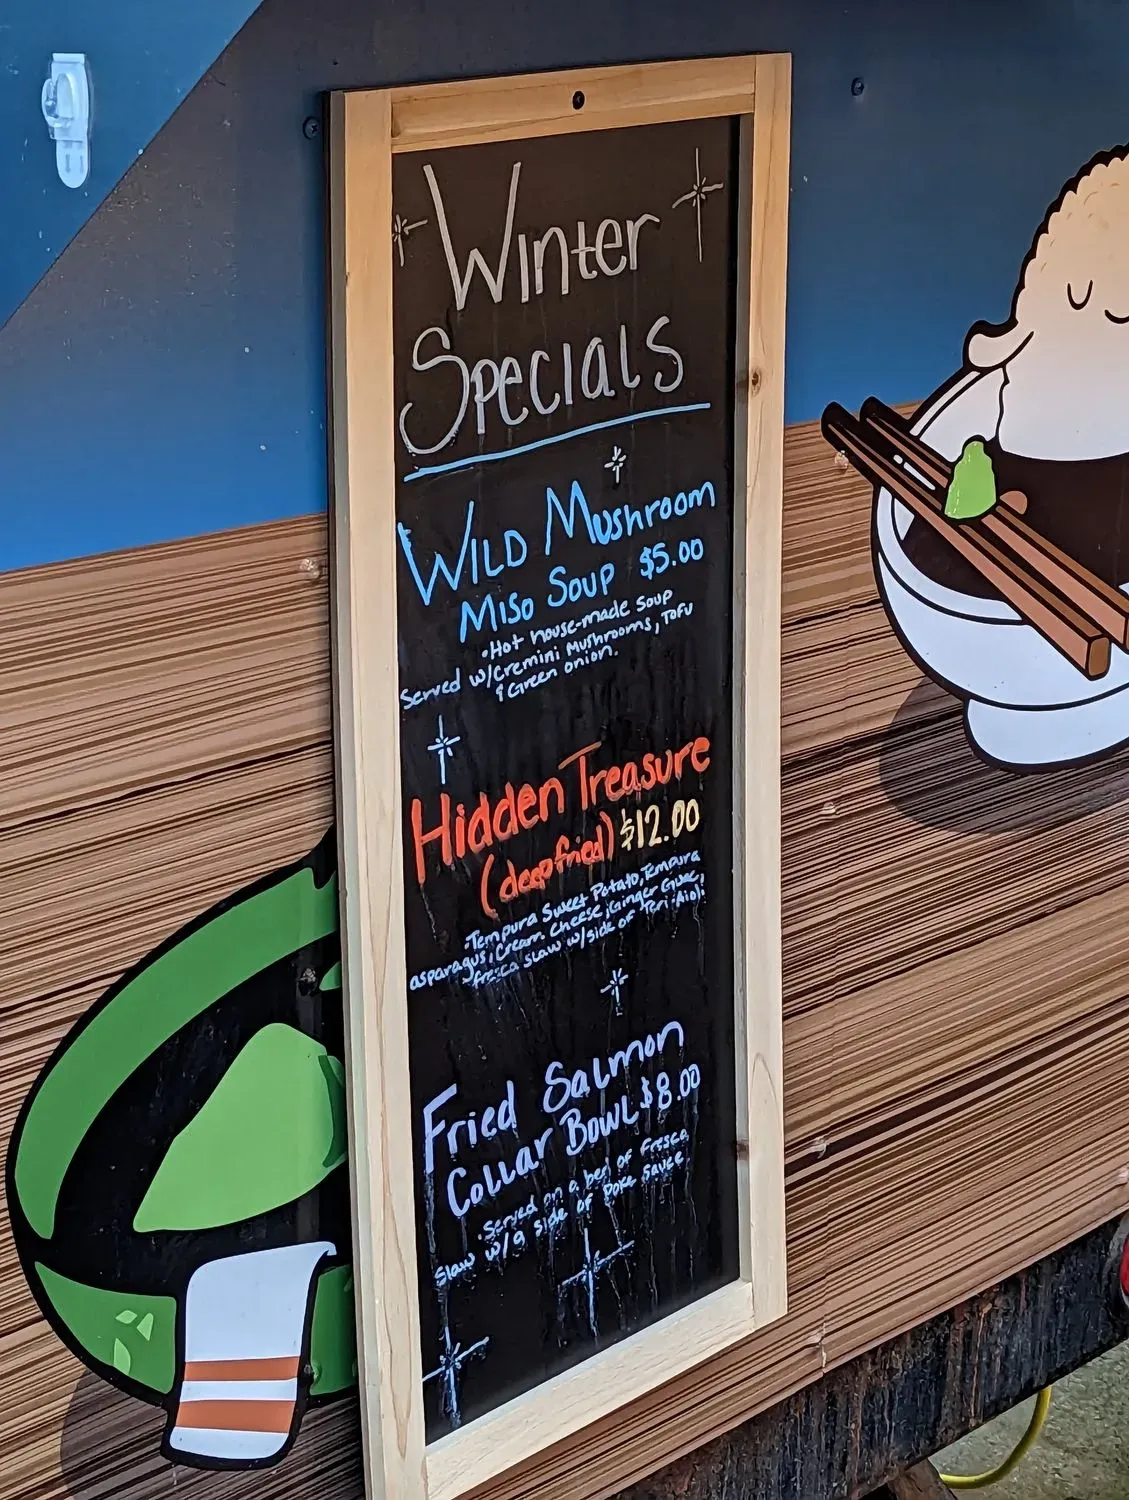 Winter
Specials
Wild Mushroom
Miso Soup $5.00
•Hot house-made soup
Served w/cremini Mushrooms, Tofu
& Green onion.
Hidden Treasure
(deepfried) $12.00
•Tempura Sweet Potato, Tempura
asparagus, Cream Cheese, Ginger Guac,
fresca slaw w/side of Teri-Aioli
Fried Salmon
Collar Bowl $8.00
•Served on a bed of fresca
Slaw w/a side of Poke Sauce